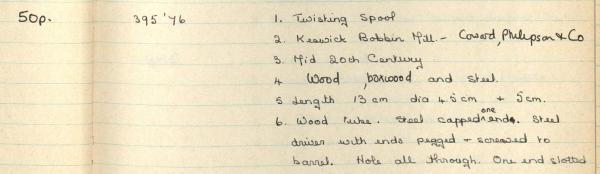 50p. 395 '76 1. Twisting Spool
2. Keswick Bobbin Mill. - Coward, Philipson & Co
3. Mid 20th Century
4 Wood, boxwood and steel.
5 Length 13 cm dia 4.5 cm + 5 cm.
6. Wood tube. Steel capped one end. Steel
driver with ends pegged + screwed to
barrel. Hole all through. One end slotted